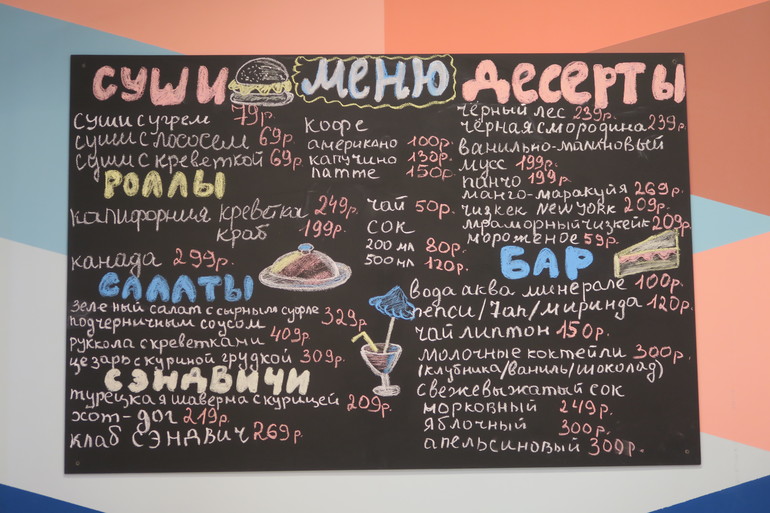 СУШИ
суши с угрем 79р.
суши с лососем 69р.
суши с креветкой 69р.
РОЛЛЫ
калифорния креветка 249р.
краб 199р.
канада 299р.
САЛАТЫ
зеленый салат с сырным суфле
подчерничным соусом 329р.
руккола с креветками 409р.
цезарь с куриной грудкой 309р.
СЭНДВИЧИ
турецкая шаверма с курицей 209р.
хот-дог 219р.
клаб СЭНДВИЧ 269р.
МЕНЮ
кофе
американо 100р.
капучино 130р.
латте 150р.
чай 50р.
сок
200 мл 80р.
500 мл 120р.
ДЕСЕРТЫ
чёрный лес 239р.
чёрная смородина 239р.
ванильно-малиновый
мусс 199р.
панчо 199р.
манго-маракуйя 269р.
чизкек NEW YORK 209р.
мраморный чизкейк 209р.
мороженое 59р.
БАР
вода аква минерале 100р.
пепси/7ап/миринда 120р.
чай липтон 150р.
молочные коктейли 300р.
(клубника/ваниль/шоколад)
свежевыжатый сок
морковный 249р.
яблочный 300р.
апельсиновый 300р.